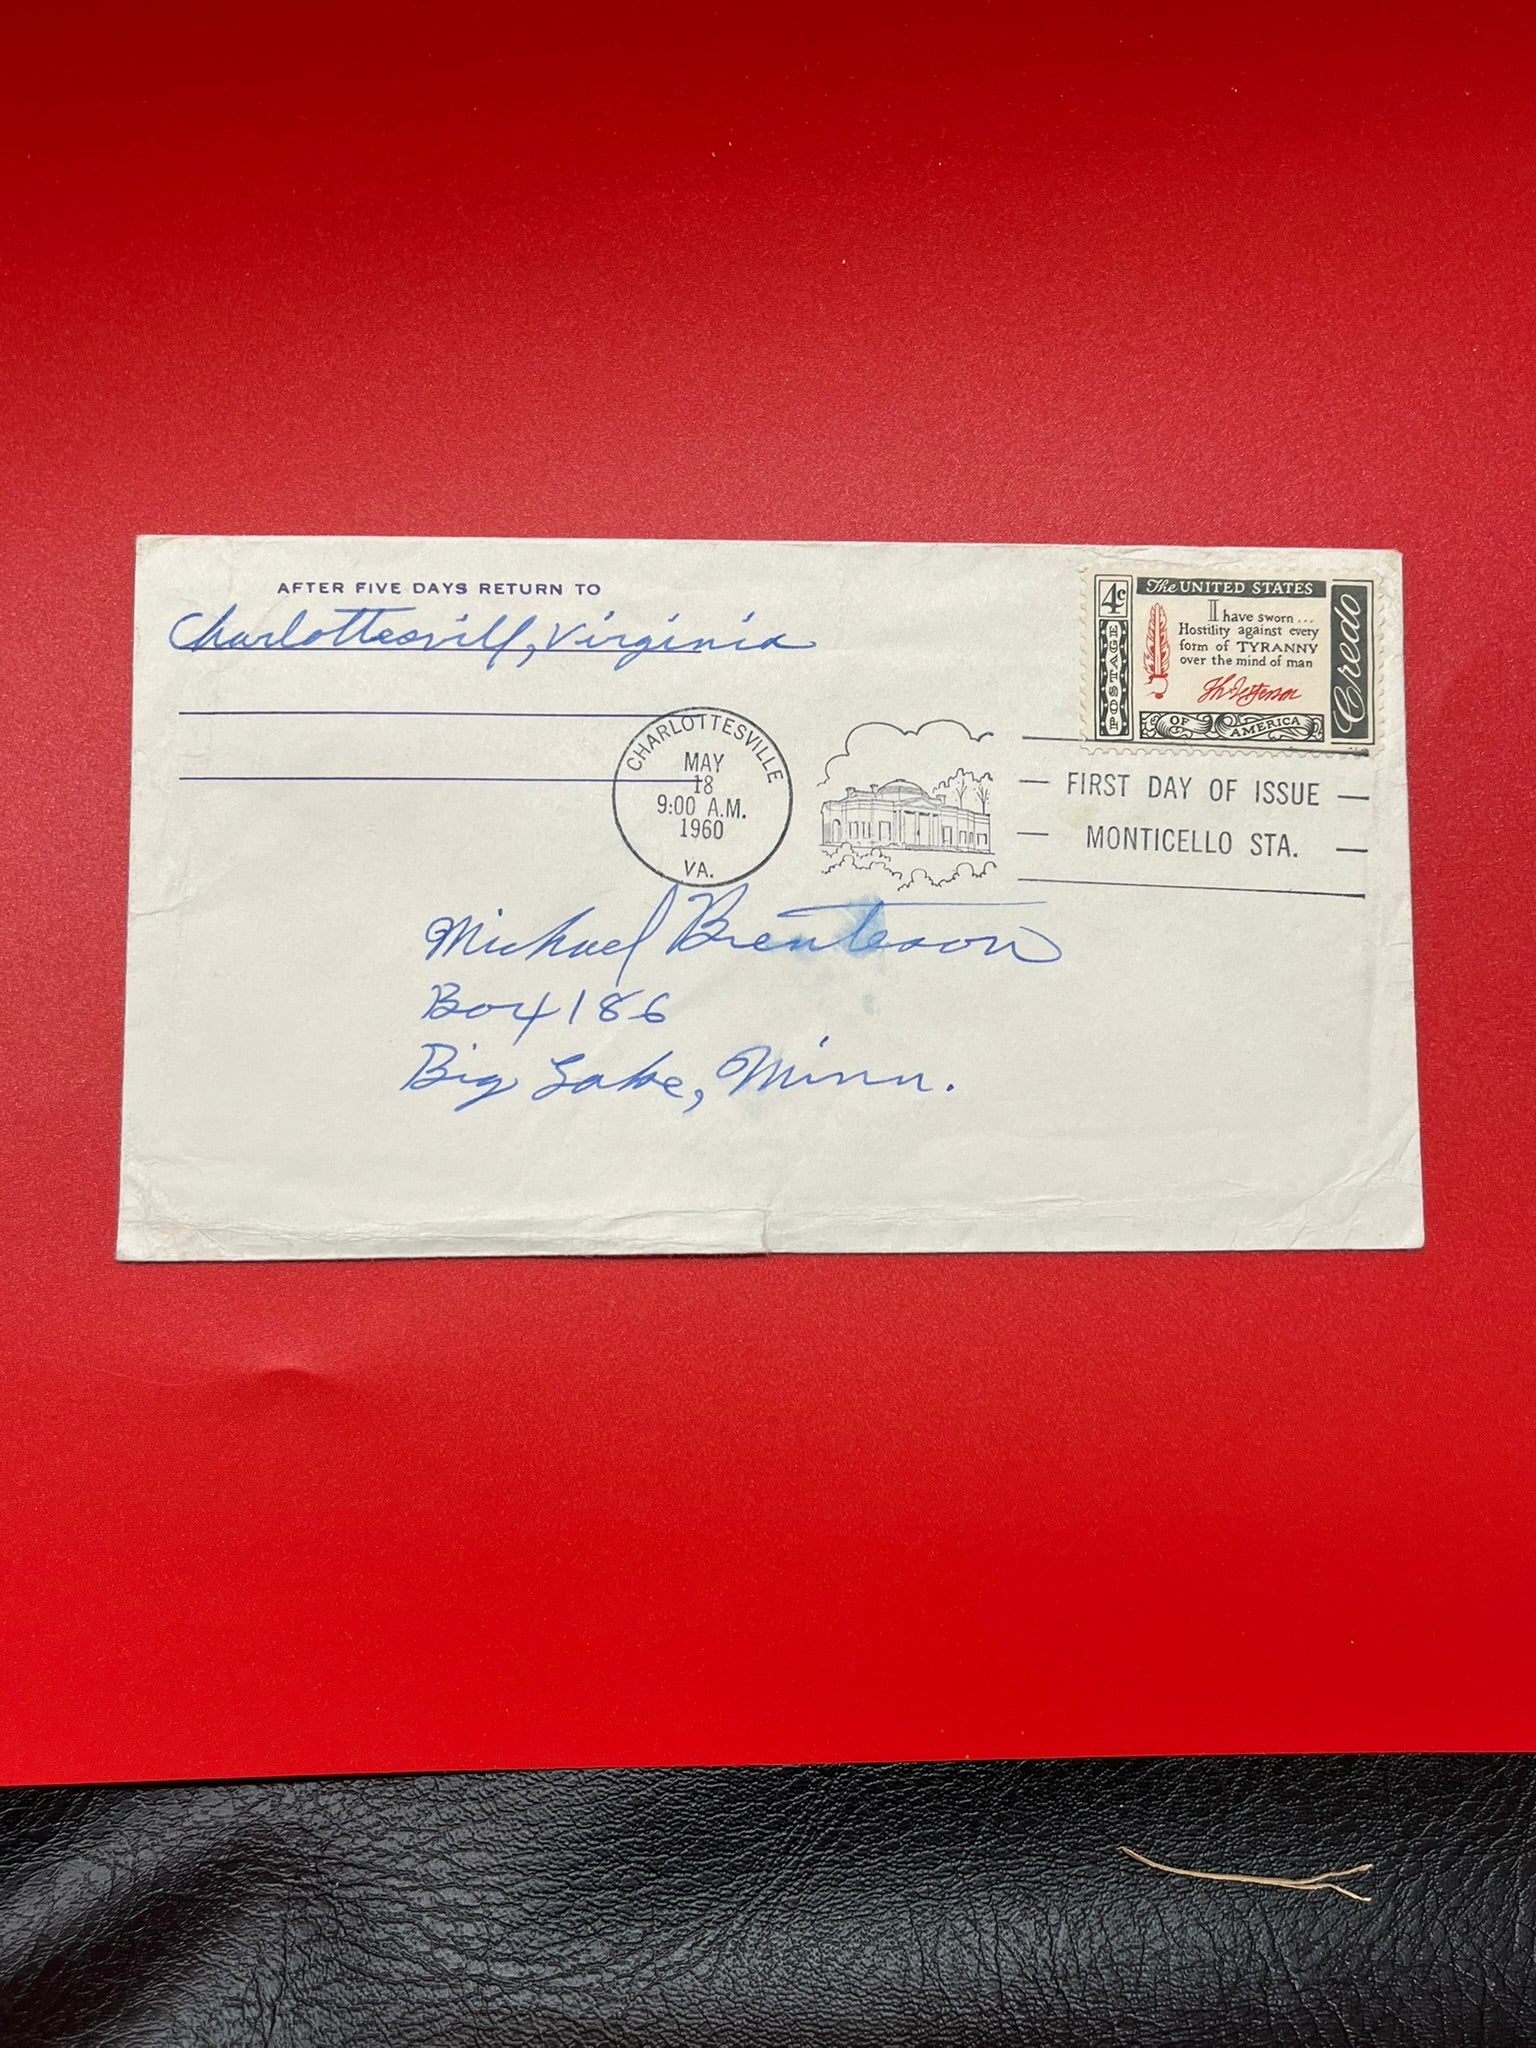 AFTER FIVE DAYS RETURN TO
Charlottesville, Virginia
4¢
POSTAGE
The UNITED STATES
I have sworn...
Hostility against every
form of TYRANNY
over the mind of man
Th Jefferson
OF AMERICA
Credo
CHARLOTTESVILLE
MAY
18
9:00 A.M.
1960
VA.
FIRST DAY OF ISSUE
MONTICELLO STA.
Michael Brenteson
Box 186
Big Lake, Minn.